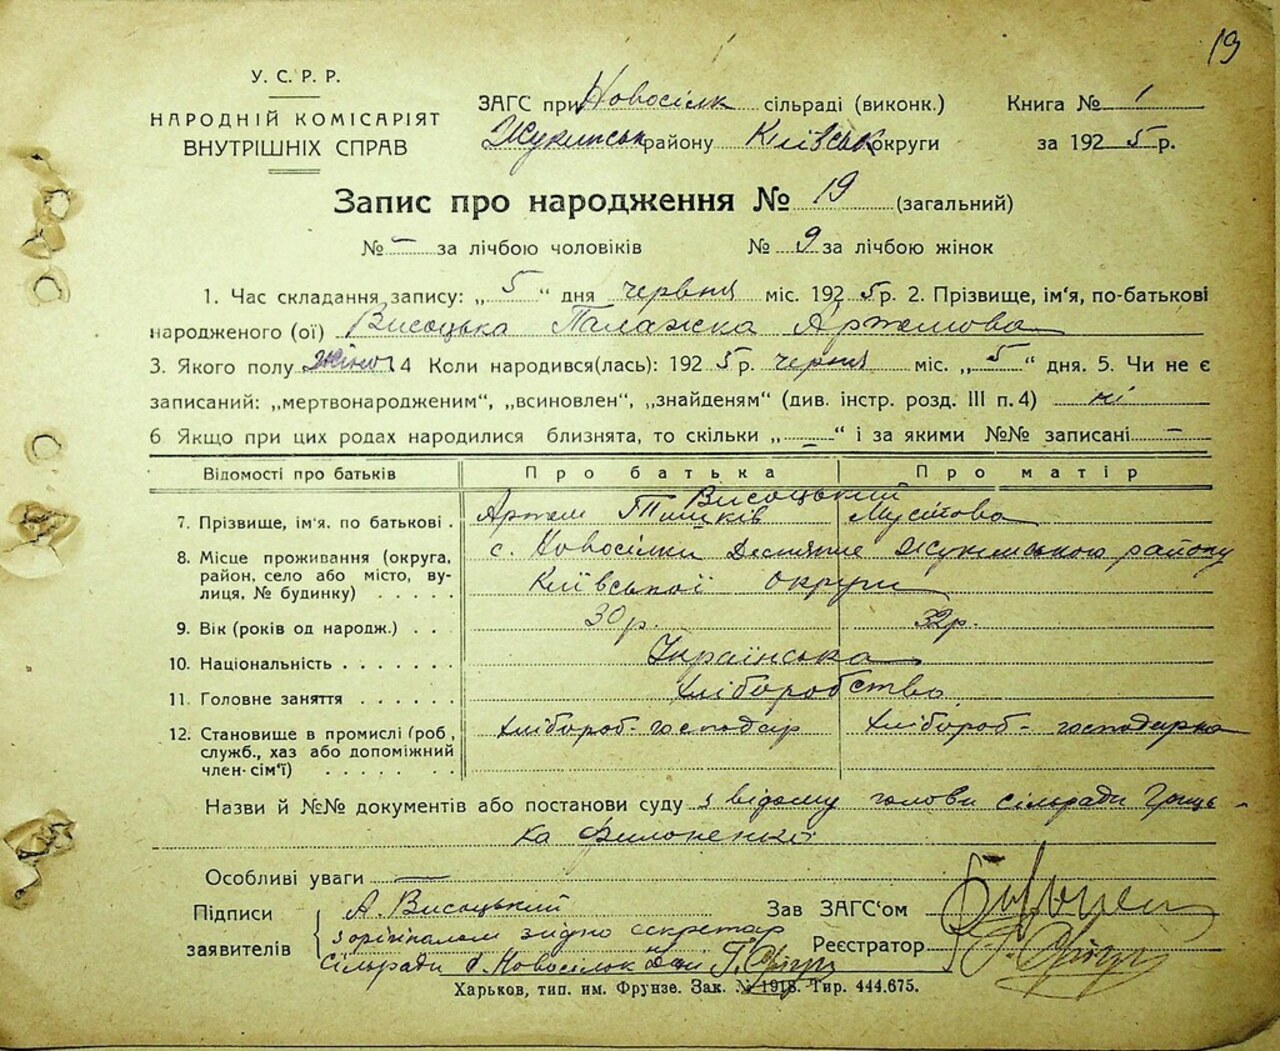 19
У. С. Р. Р.
НАРОДНІЙ КОМІСАРІЯТ
ВНУТРІШНІХ СПРАВ
ЗАГС при Новосілк сільраді (виконк.)
Жукинськ району Київськ округи
Книга № 1
за 1925 р.
Запис про народження № 19 (загальний)
№ — за лічбою чоловіків № 9 за лічбою жінок
1. Час складання запису: „ 5 “ дня червня міс. 1925 р. 2. Прізвище, ім'я, по-батькові
народженого (ої) Висоцька Палажка Артемова
3. Якого полу жіно 4 Коли народився(лась): 1925 р. червня міс. „ 5 “ дня. 5. Чи не є
записаний: „мертвонародженим“, „всиновлен“, „знайденям“ (див. інстр. розд. III п. 4) ні
6 Якщо при цих родах народилися близнята, то скільки „ — “ і за якими №№ записані —
Відомості про батьків Про батька Про матір
Висоцький
7. Прізвище, ім'я. по батькові . Артем Тишків
8. Місце проживання (округа, с. Новосілки Десняние Жукинського району
район, село або місто, ву- Київської округи
лиця, № будинку) . . . . .
9. Вік (років од народж.) . . 30 р. 32 р.
10. Національність . . . . . . . Українська
11. Головне заняття . . . . . . хліборобство
12. Становище в промислі (роб, хлібороб-господар хлібороб-господарка
служб., хаз або допоміжний
член-сім'ї) . . . . . . .
Назви й №№ документів або постанови суду з відому голови сільради Гриць-
ка Филоненка
Особливі уваги —
Підписи А. Висоцький Зав ЗАГС'ом
заявителів з орігіналом згідно секретар Реєстратор
сільради с. Новосілок
Харьков, тип. им. Фрунзе. Зак. № 1918. Тир. 444.675.